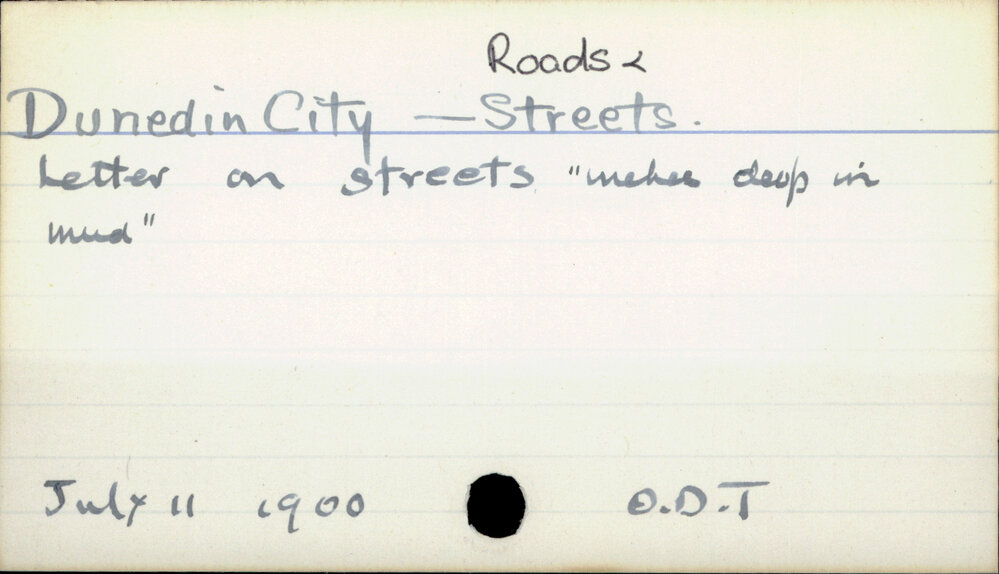 Roads &
Dunedin City — Streets.
Letter on streets "inches deep in
mud"
July 11 1900 O.D.T